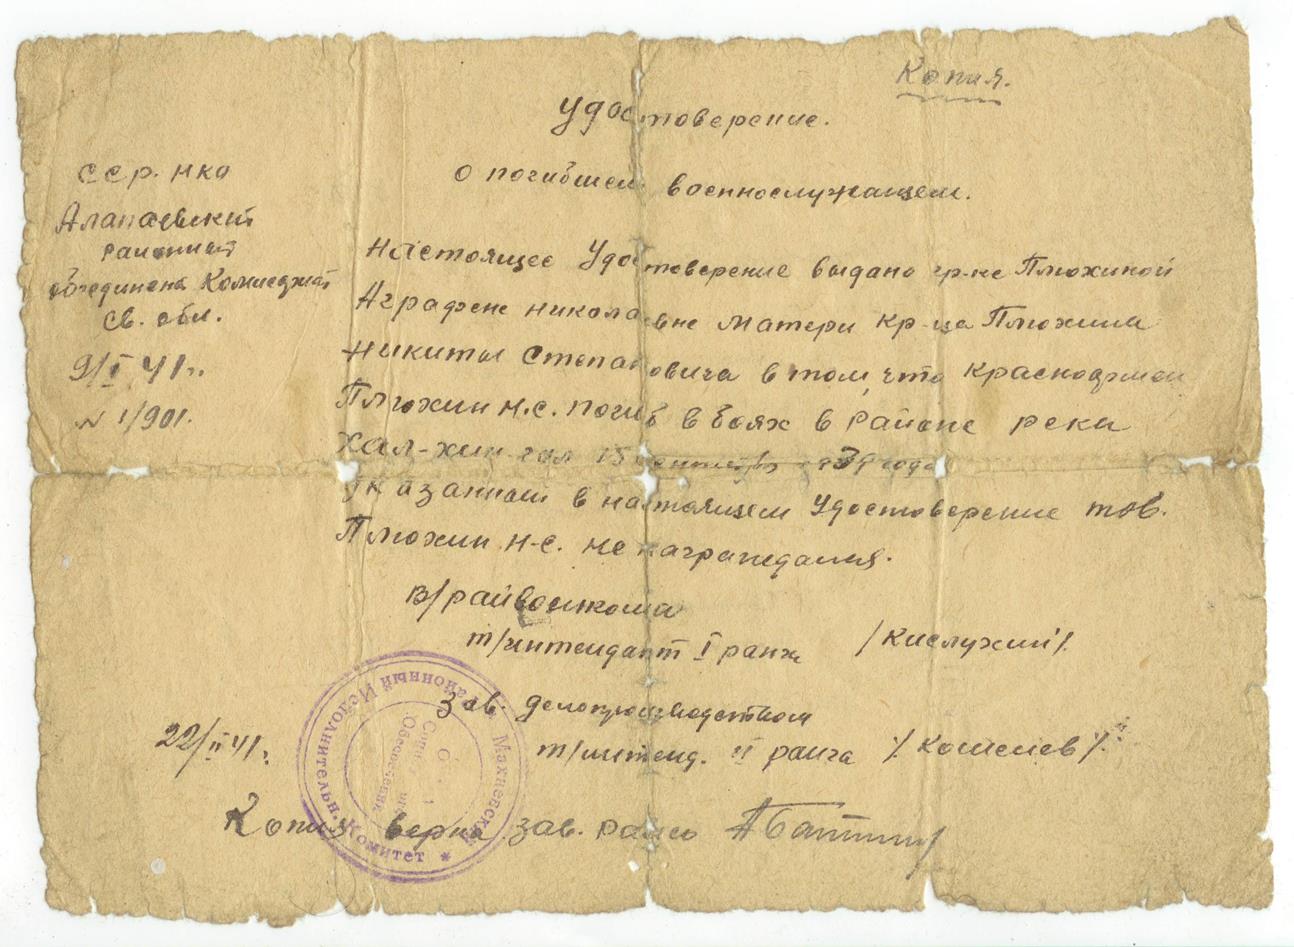 Копия.
Удостоверение.
о погибшем военнослужащем.
ССР. НКО
Алапаевский
районный
объединена Комиссариат
Св. обл.
9/I 41г.
N 1/901.
Настоящее Удостоверение выдано гр-не Плюхиной
Аграфене Николаевне матери кр-ца Плюхина
Никиты Степановича в том, что красноармеец
Плюхин Н.С. погиб в боях в районе реки
Хал-хин-гол 15 сентября 1939 года
указанный в настоящем Удостоверение тов.
Плюхин Н-С. не награждался.
В/райвоенкома
т/интендант I ранга /Кислухин/.
Зав. делопроизводством
т/интенд. II ранга /Кошелев/.
22/II 41г.
Копия верна зав. райсо
Махневский Районный Исполнительн. Комитет *
Обеспечения